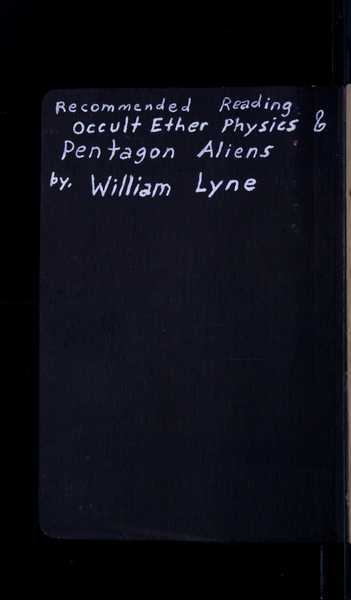 Recommended Reading
Occult Ether Physics &
Pentagon Aliens
by. William Lyne